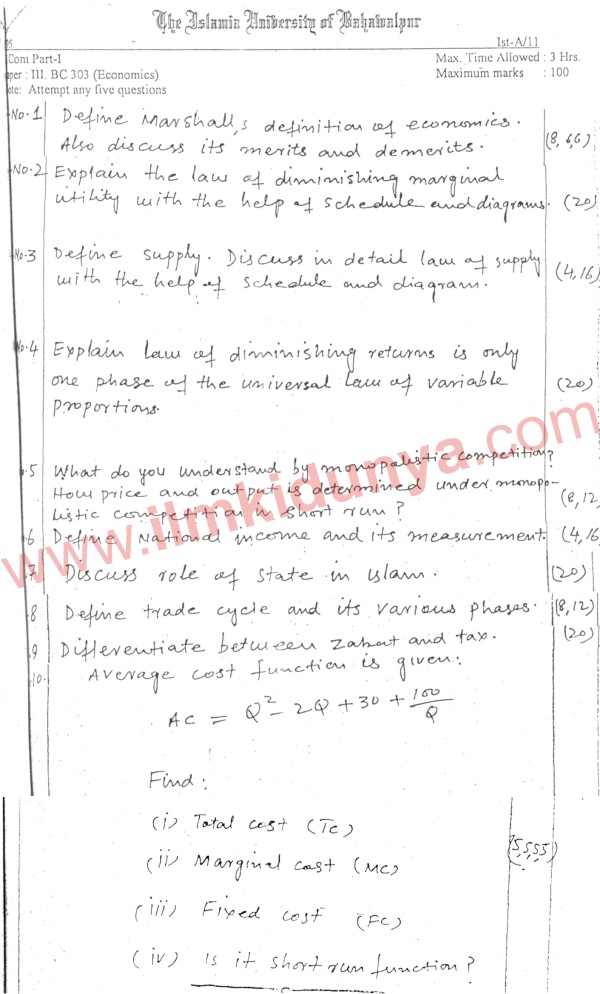 The Islamia University of Bahawalpur
Ist-A/11
Com Part-I Max. Time Allowed : 3 Hrs.
per : III. BC 303 (Economics) Maximum marks : 100
ote: Attempt any five questions
No.1 Define Marshall,s definition of economics.
Also discuss its merits and demerits. (8,6,6)
No.2 Explain the law of diminishing marginal
utility with the help of schedule and diagrams. (20)
No.3 Define supply. Discuss in detail law of supply
with the help of schedule and diagram. (4,16)
No.4 Explain law of diminishing returns is only
one phase of the universal law of variable
proportions. (20)
.5 What do you understand by monopalistic competition?
How price and output is determined under monopo-
listic competition in short run? (8,12
6 Define National income and its measurement. (4,16
7 Discuss role of state in islam. (20)
8 Define trade cycle and its various phases. (8,12)
9 Differentiate between zakat and tax. (20)
10. Average cost function is given:
AC = Q² - 2Q + 30 + 100/Q
Find:
(i) Total cost (TC)
(ii) Marginal cost (MC) (5,5,5,5)
(iii) Fixed cost (FC)
(iv) Is it short run function?
www.ilmkidunya.com